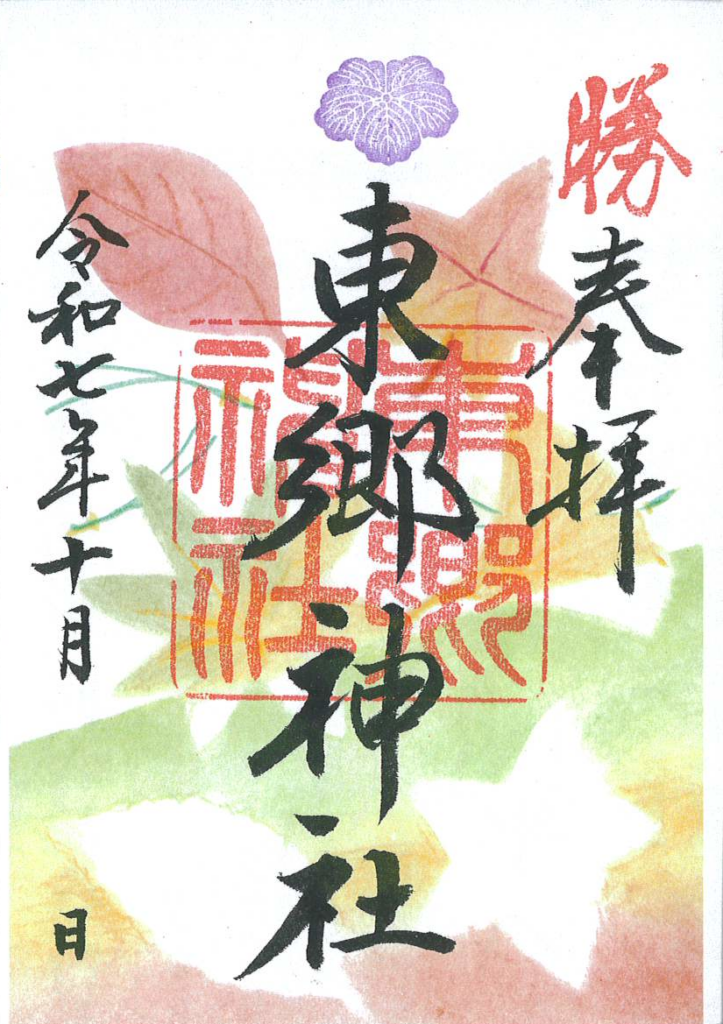 勝
奉拝
東郷神社
東郷神社
令和七年十月
日